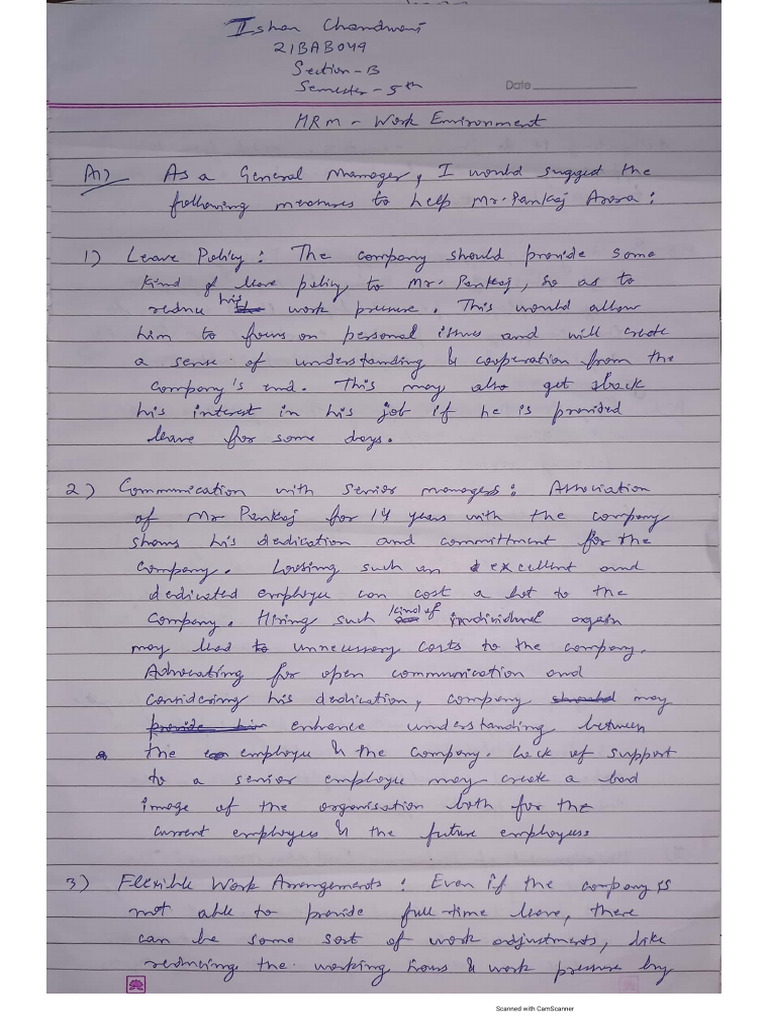 Ishan Chandwani
21BAB049
Section - B
Semester - 5th
Date
HRM - Work Environment
A1) As a General Manager, I would suggest the
following measures to help Mr. Pankaj Arora :
1) Leave Policy : The company should provide some
kind of leave policy to Mr. Pankaj, so as to
reduce his work pressure. This would allow
him to focus on personal issues and will create
a sense of understanding & cooperation from the
company's end. This may also get back
his interest in his job if he is provided
leave for some days.
2) Communication with senior managers : Association
of Mr Pankaj for 14 years with the company
shows his dedication and committment for the
company. Loosing such an excellent and
dedicated employee can cost a lot to the
company. Hiring such kind of individual again
may lead to unnecessary costs to the company.
Advocating for open communication and
considering his dedication, company may
enhance understanding between
the employee & the company. Lack of support
to a senior employee may create a bad
image of the organisation both for the
current employees & the future employees.
3) Flexible Work Arrangements : Even if the company is
not able to provide full-time leave, there
can be some sort of work adjustments, like
reducing the working hours & work pressure by
Scanned with CamScanner